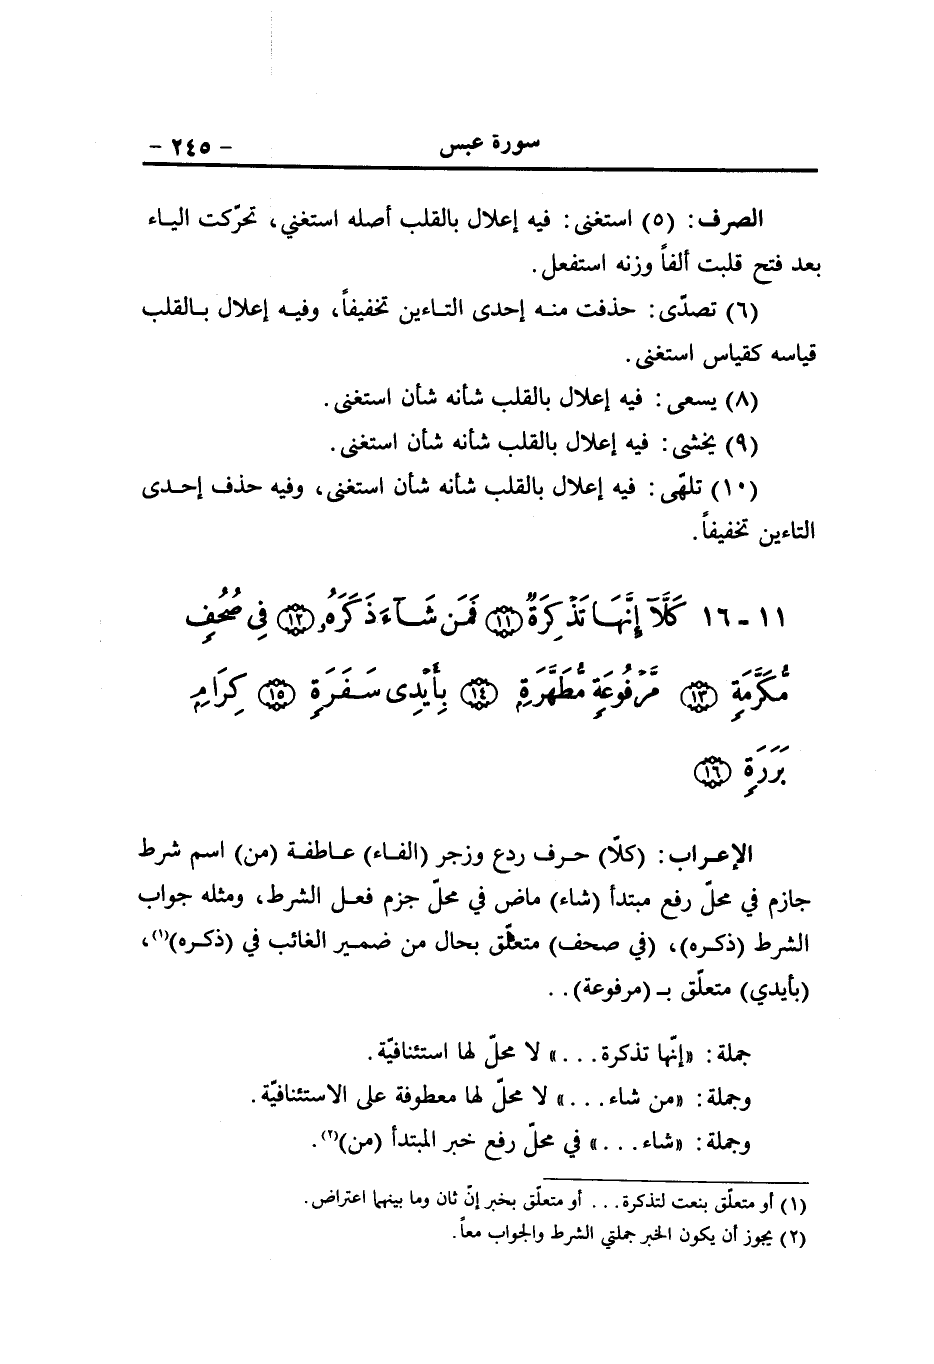 سورة عبس - ٢٤٥ -
الصرف: (٥) استغنى: فيه إعلال بالقلب أصله استغني، تحرّكت الياء
بعد فتح قلبت ألفاً وزنه استفعل.
(٦) تصدّى: حذفت منه إحدى التاءين تخفيفاً، وفيه إعلال بالقلب
قياسه كقياس استغنى.
(٨) يسعى: فيه إعلال بالقلب شأنه شأن استغنى.
(٩) يخشى: فيه إعلال بالقلب شأنه شأن استغنى.
(١٠) تلهّى: فيه إعلال بالقلب شأنه شأن استغنى، وفيه حذف إحدى
التاءين تخفيفاً.
١١ - ١٦ كَلَّآ إِنَّهَا تَذْكِرَةٌ ﴿١١﴾ فَمَن شَآءَ ذَكَرَهُۥ ﴿١٢﴾ فِى صُحُفٍ
مُّكَرَّمَةٍ ﴿١٣﴾ مَّرْفُوعَةٍ مُّطَهَّرَةٍ ﴿١٤﴾ بِأَيْدِى سَفَرَةٍ ﴿١٥﴾ كِرَامٍ
بَرَرَةٍ ﴿١٦﴾
الإعراب: (كلّا) حرف ردع وزجر (الفاء) عاطفة (من) اسم شرط
جازم في محلّ رفع مبتدأ (شاء) ماض في محلّ جزم فعل الشرط، ومثله جواب
الشرط (ذكره)، (في صحف) متعلّق بحال من ضمير الغائب في (ذكره)(١)،
(بأيدي) متعلّق بـ (مرفوعة)..
جملة: «إنّها تذكرة...» لا محلّ لها استئنافيّة.
وجملة: «من شاء...» لا محلّ لها معطوفة على الاستئنافيّة.
وجملة: «شاء...» في محلّ رفع خبر المبتدأ (من)(٢).
(١) أو متعلّق بنعت لتذكرة... أو متعلّق بخبر إنّ ثان وما بينهما اعتراض.
(٢) يجوز أن يكون الخبر جملتي الشرط والجواب معاً.